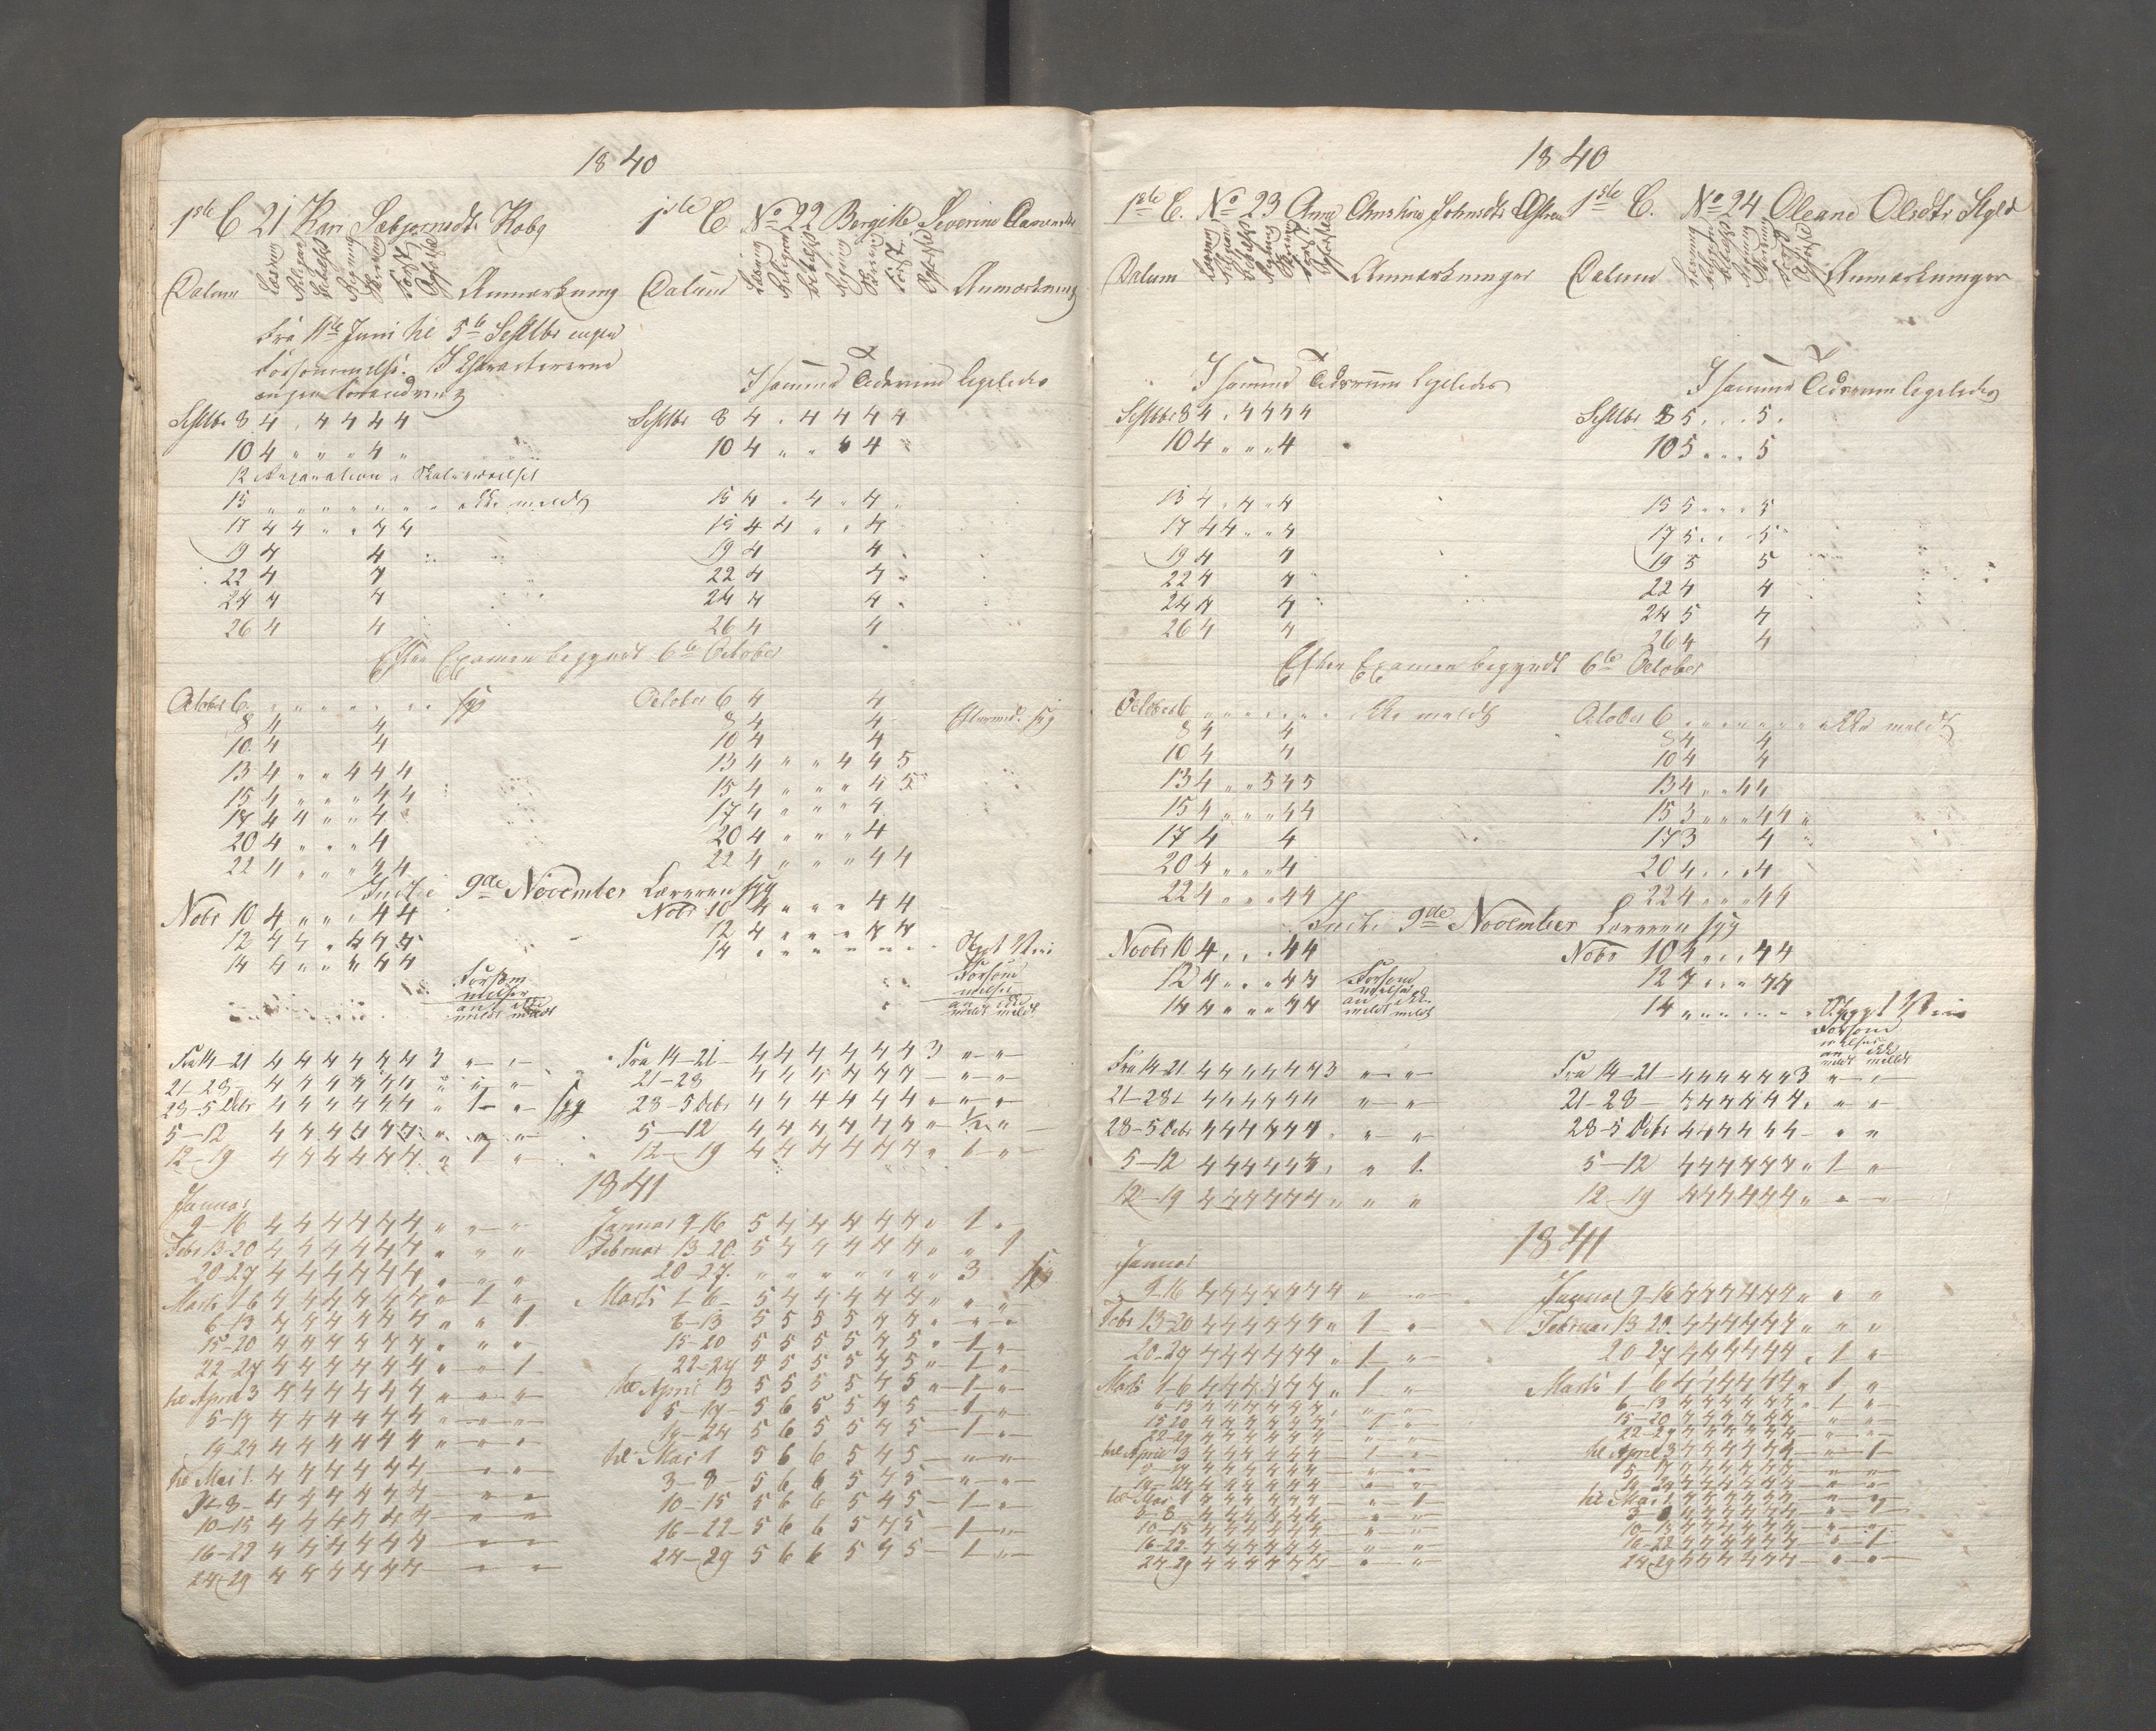 1840
1ste C 21 Kari
Datum Læsning Religion Regning Skrivning Opførsel Anmærkning
Fra 11te Juni til 5te Septbr ingen
Forsømmelse. I Charactererne
ingen Forandring
Septbr 8 4 . 4 4 4 4
10 4 " " " 4 "
12 Reparation i Skoleværelset
15 " " " " " " " ikke meldt
17 4 4 " " 4 4
19 4 4
22 4 4
24 4 4
26 4 4
Efter Examen begyndt 6te October
October 6 " " " " " " syg
8 4 4
10 4 4
13 4 " " 4 4 4
15 4 " " " 4 4
17 4 4 " " 4
20 4 " " " 4
22 4 " " " 4 4
Indtil 9de November Læreren syg
Nobr 10 4 " " " 4 4
12 4 4 " 4 4 4
14 4 " " " 4 4
Forsøm
melser
an ikke
meldt meldt
Fra 14-21 4 4 4 4 4 4 4 3 " "
21-28 4 4 4 4 4 4 " " "
28-5 Decbr 4 4 4 4 4 4 " 1 " syg
5-12 4 4 4 4 4 4 " " "
12-19 4 4 4 4 4 4 " 1 "
1841
Januar
9-16 4 4 4 4 4 4 " " "
Febr 13-20 4 4 4 4 4 4 " " "
20-27 4 4 4 4 4 4 " " "
Marts 1-6 4 4 4 4 4 4 " 1 "
6-13 4 4 4 4 4 4 " " 1
15-20 4 4 4 4 4 4 " " "
22-27 4 4 4 4 4 4 " " 1
til April 3 4 4 4 4 4 4 " " "
5-17 4 4 4 4 4 4 " "
19-24 4 4 4 4 4 4 " "
til Mai 1 4 4 4 4 4 4 " "
3-8 4 4 4 4 4 4 " "
10-15 4 4 4 4 4 4 " "
16-22 4 4 4 4 4 4 " "
24-29 4 4 4 4 4 4 " "
1ste C. No 22 Bergitte Severine
Datum Læsning Religion Regning Skrivning Opførsel Anmærkning
I samme Tidsrum ligeledes
Septbr 8 4 . 4 4 4 4
10 4 " " 4 "
15 4 " 4 " 4 "
17 4 4 " " 4
19 4 4
22 4 4
24 4 4
26 4 4
October 6 4 4
8 4 4
10 4 4
13 4 " " 4 4 5
15 4 " " " 4 5
17 4 " " " 4
20 4 " " " 4
22 4 " " " 4 4
Nobr 10 4 " " " 4 4
12 4 " " " 4 4
14 " " " " " "
Forsøm
melser
an ikke
meldt meldt
Fra 14-21 4 4 4 4 4 4 4 3 " "
21-28 4 4 4 4 4 4 " "
28-5 Decbr 4 4 4 4 4 4 " " "
5-12 4 4 4 4 4 4 " 1/2 "
12-19 4 4 4 4 4 4 " 1 "
Januar 9-16 5 4 4 4 4 4 " 1 "
Februar 13-20 5 4 4 4 4 4 " " 1
20-27 " " " " " " " 3 syg
Marts 1-6 5 4 4 4 4 4 " " "
6-13 5 5 5 5 4 4 " " "
15-20 5 5 5 5 4 5 " 1 "
22-27 4 5 5 5 4 5 " 1 "
til April 3 5 5 5 5 4 5 " 1 "
5-17 5 6 5 5 4 5 1 "
19-24 5 6 5 5 4 5 1 "
til Mai 1 5 6 6 5 4 5 " "
3-8 5 6 6 5 4 5 " "
10-15 5 6 6 5 4 5 1 "
16-22 5 6 6 5 4 5 1 "
24-29 5 6 6 5 4 5 1 "
1840
1ste C. No 23 Anne Johnsdtr
Datum Læsning Religion Regning Skrivning Opførsel Anmærkninger
I samme Tidsrum ligeledes
Septbr 8 4 . 4 4 4 4
10 4 " " " 4
15 4 " 4 " 4
17 4 4 " " 4
19 4 4
22 4 4
24 4 4
26 4 4
Efter Examen begyndt 6te October
October 6 " " " " " " ikke meldt
8 4 4
10 4 4
13 4 " " 5 4 5
15 4 " " " 4 4
17 4 4
20 4 " " " 4
22 4 " " " 4 4
Indtil 9de November Læreren syg
Novbr 10 4 " " " 4 4
12 4 " " " 4 4
14 4 " " " 4 4
Forsøm
melser
an ikke
meldt meldt
Fra 14-21 4 4 4 4 4 4 3 " "
21-28 4 4 4 4 4 4 " "
28-5 Decbr 4 4 4 4 4 4 " " "
5-12 4 4 4 4 4 4 " " 1
12-19 4 4 4 4 4 4 " " "
1841
Januar
9-16 4 4 4 4 4 4 4 " "
Febr 13-20 4 4 4 4 4 4 " 1 "
20-27 4 4 4 4 4 4 " 1 "
Marts 1-6 4 4 4 4 4 4 " 1 "
6-13 4 4 4 4 4 4 " " "
15-20 4 4 4 4 4 4 1 "
22-27 4 4 4 4 4 4 " "
til April 3 4 4 4 4 4 4 1 "
5-17 4 4 4 4 4 4 " "
19-24 4 4 4 4 4 4 " "
til Mai 1 4 4 4 4 4 4 " 1
3-8 4 4 4 4 4 4 " "
10-15 4 4 4 4 4 4 " "
16-22 4 4 4 4 4 4 " "
24-29 4 4 4 4 4 4 " "
1ste C. No 24 Oleane Olsdtr
Datum Læsning Religion Regning Skrivning Opførsel Anmærkninger
I samme Tidsrum ligeledes
Septbr 8 5 . . . 5 .
10 5 " " " 5
15 5 " " " 5
17 5 " " 5
19 5 5
22 4 4
24 5 4
26 4 4
October 6 " " " " " " " ikke meldt
8 4 4
10 4 4
13 4 " " 4 4
15 3 " " " 4 4 "
17 3 4 "
20 4 " " " 4
22 4 " " " 4 4
Nobr 10 4 " " " 4 4
12 4 " " " 4 4
14 " " " " " "
Forsøm
melser
an ikke
meldt meldt
Fra 14-21 4 4 4 4 4 4 3 " "
21-28 4 4 4 4 4 4 " " "
28-5 Decbr 4 4 4 4 4 4 " "
5-12 4 4 4 4 4 4 " 1 "
12-19 4 4 4 4 4 4 " " "
Januar 9-16 4 4 4 4 4 4 " " "
Februar 13-20 4 4 4 4 4 4 " " "
20-27 4 4 4 4 4 4 " 1 "
Marts 1-6 4 4 4 4 4 4 " 1 "
6-13 4 4 4 4 4 4 " 1 "
15-20 4 4 4 4 4 4 " "
22-27 4 4 4 4 4 4 " "
til April 3 4 4 4 4 4 4 " 1
5-17 4 4 4 4 4 4 " "
19-24 4 4 4 4 4 4 " "
til Mai 1 4 4 4 4 4 4 " "
3-8 4 4 4 4 4 4 " 1
10-15 4 4 4 4 4 4 " "
16-22 4 4 4 4 4 4 " 1
24-29 4 4 4 4 4 4 " "